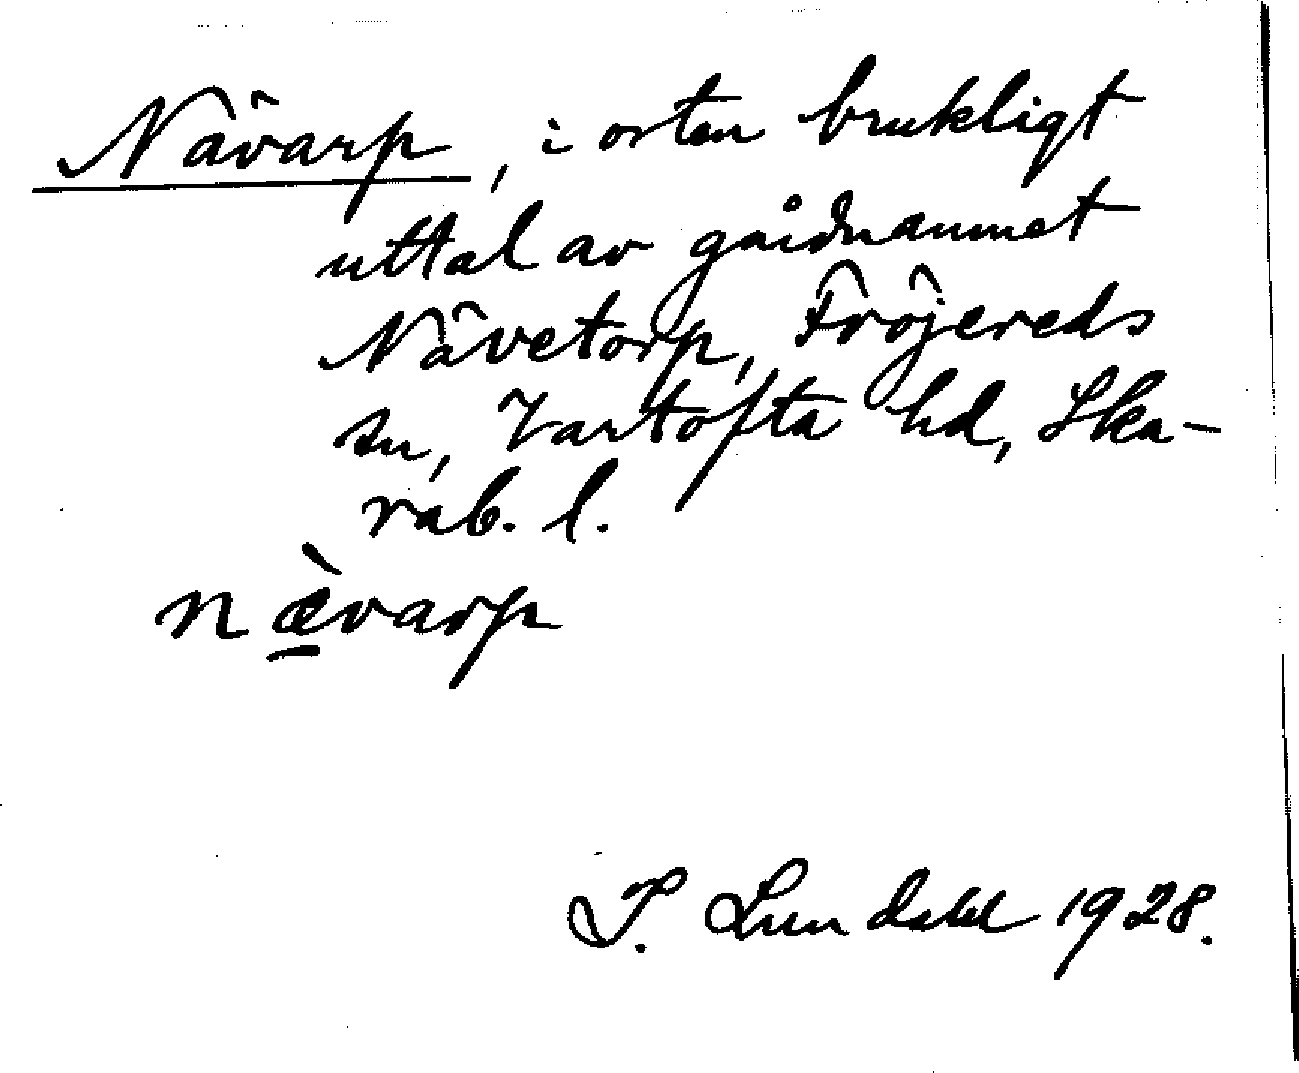 Nävarp, i orten brukligt
uttal av gårdnamnet
Nävetorp, Fröjereds
sn, Vartofta hd, Ska-
rab. l.
næ̲̀varp
I. Lundahl 1928.